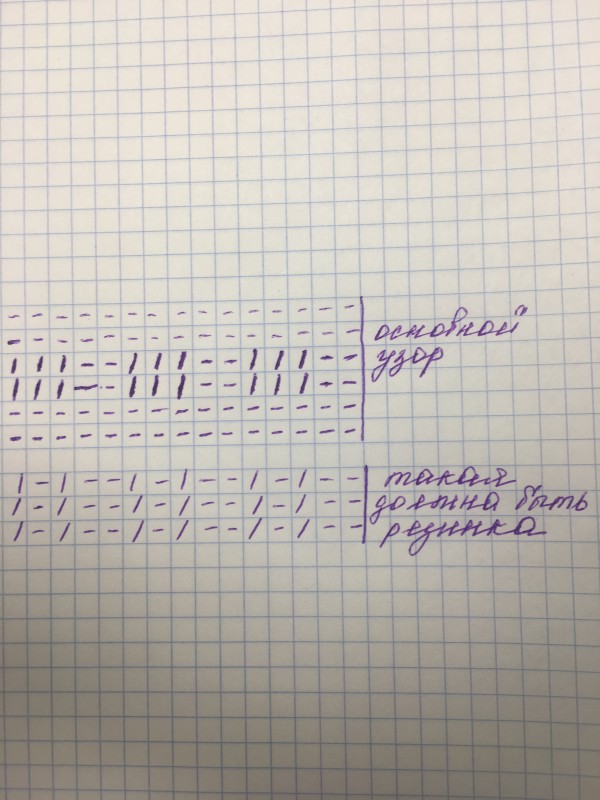 основной
узор
такая
должна быть
резинка